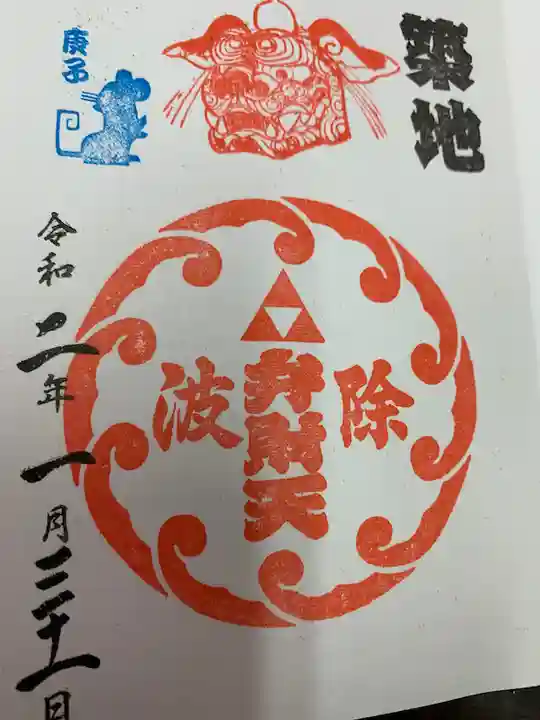 築地
庚子
除
弁財天
波
令和二年一月二十一日